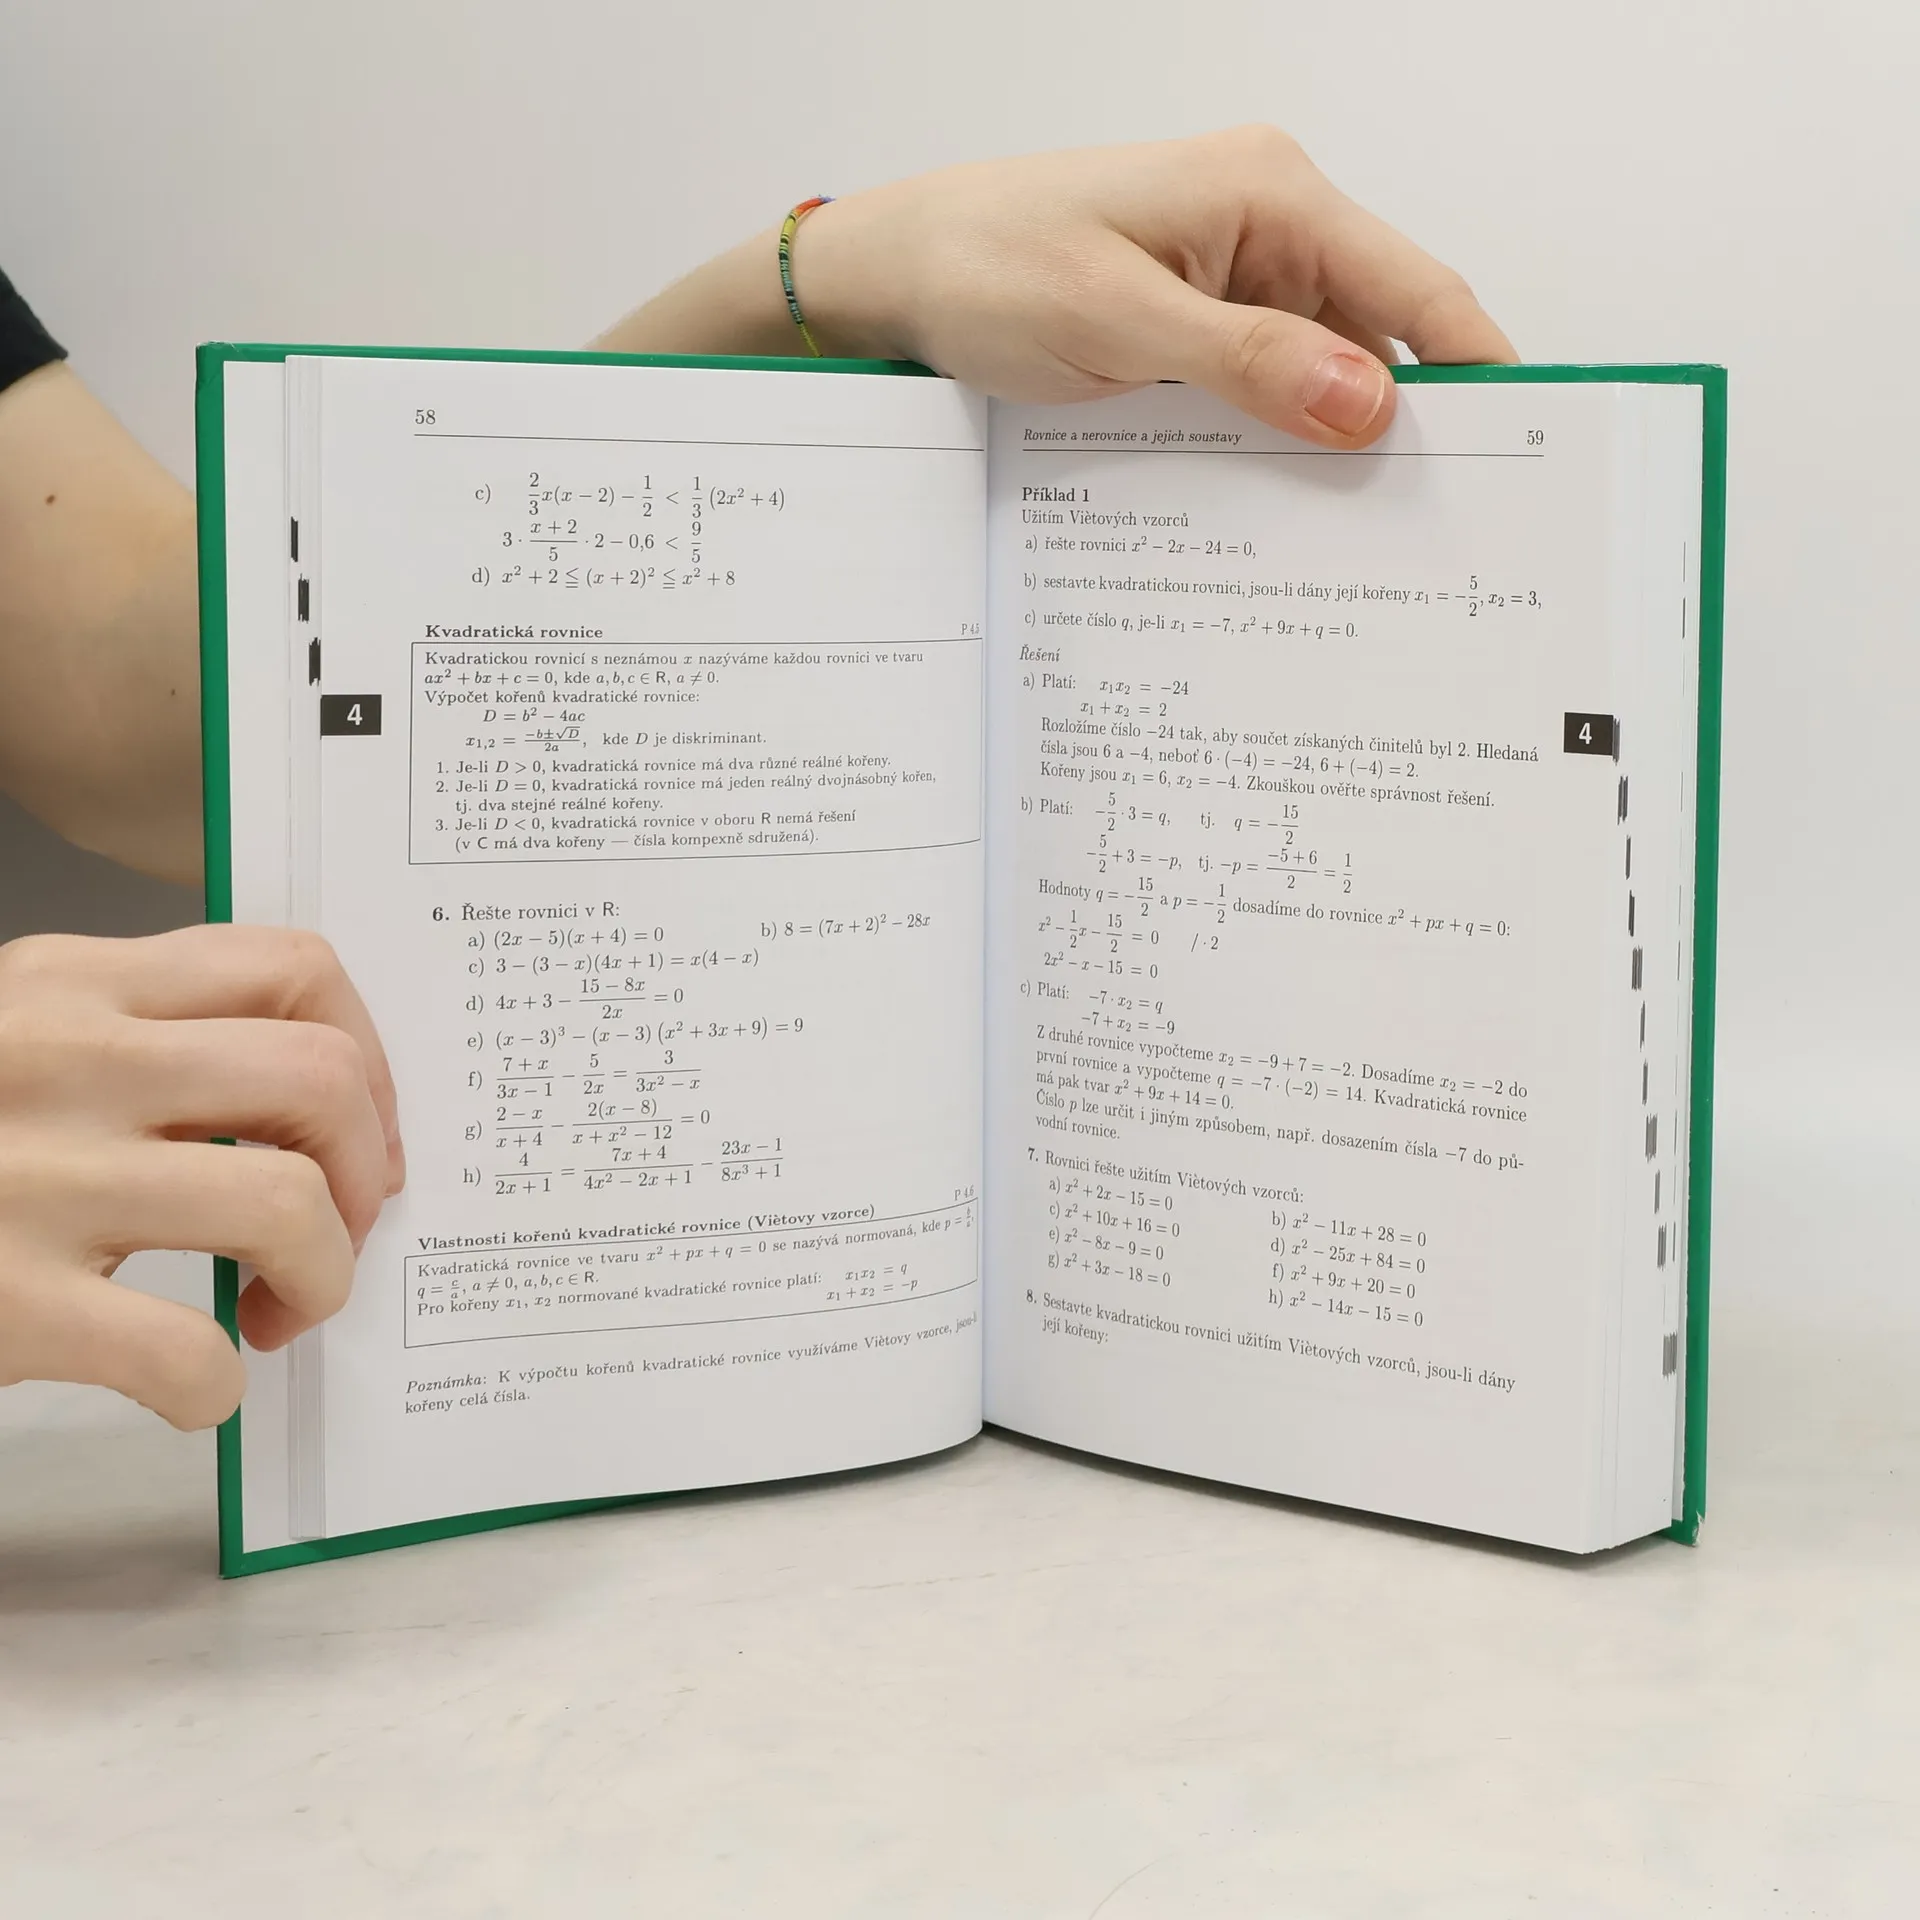 58
c) 2/3 x(x − 2) − 1/2 < 1/3 (2x² + 4)
3 · (x + 2)/5 · 2 − 0,6 < 9/5
d) x² + 2 ≦ (x + 2)² ≦ x² + 8
Kvadratická rovnice P 4.5
Kvadratickou rovnicí s neznámou x nazýváme každou rovnici ve tvaru
ax² + bx + c = 0, kde a, b, c ∈ R, a ≠ 0.
Výpočet kořenů kvadratické rovnice:
D = b² − 4ac
x₁,₂ = (−b±√D)/2a, kde D je diskriminant.
1. Je-li D > 0, kvadratická rovnice má dva různé reálné kořeny.
2. Je-li D = 0, kvadratická rovnice má jeden reálný dvojnásobný kořen,
tj. dva stejné reálné kořeny.
3. Je-li D < 0, kvadratická rovnice v oboru R nemá řešení
(v C má dva kořeny — čísla kompexně sdružená).
4
6. Řešte rovnici v R:
a) (2x − 5)(x + 4) = 0 b) 8 = (7x + 2)² − 28x
c) 3 − (3 − x)(4x + 1) = x(4 − x)
d) 4x + 3 − (15 − 8x)/2x = 0
e) (x − 3)³ − (x − 3) (x² + 3x + 9) = 9
f) (7 + x)/(3x − 1) − 5/2x = 3/(3x² − x)
g) (2 − x)/(x + 4) − 2(x − 8)/(x + x² − 12) = 0
h) 4/(2x + 1) = (7x + 4)/(4x² − 2x + 1) − (23x − 1)/(8x³ + 1)
Vlastnosti kořenů kvadratické rovnice (Viètovy vzorce) P 4.6
Kvadratická rovnice ve tvaru x² + px + q = 0 se nazývá normovaná, kde p = b/a,
q = c/a, a ≠ 0, a, b, c ∈ R.
Pro kořeny x₁, x₂ normované kvadratické rovnice platí: x₁x₂ = q
x₁ + x₂ = −p
Poznámka: K výpočtu kořenů kvadratické rovnice využíváme Viètovy vzorce, jsou-li
kořeny celá čísla.
Rovnice a nerovnice a jejich soustavy 59
Příklad 1
Užitím Viètových vzorců
a) řešte rovnici x² − 2x − 24 = 0,
b) sestavte kvadratickou rovnici, jsou-li dány její kořeny x₁ = −5/2, x₂ = 3,
c) určete číslo q, je-li x₁ = −7, x² + 9x + q = 0.
Řešení
a) Platí: x₁x₂ = −24
x₁ + x₂ = 2
Rozložíme číslo −24 tak, aby součet získaných činitelů byl 2. Hledaná
čísla jsou 6 a −4, neboť 6 · (−4) = −24, 6 + (−4) = 2.
Kořeny jsou x₁ = 6, x₂ = −4. Zkouškou ověřte správnost řešení.
4
b) Platí: −5/2 · 3 = q, tj. q = −15/2
−5/2 + 3 = −p, tj. −p = (−5 + 6)/2 = 1/2
Hodnoty q = −15/2 a p = −1/2 dosadíme do rovnice x² + px + q = 0:
x² − 1/2 x − 15/2 = 0 / · 2
2x² − x − 15 = 0
c) Platí: −7 · x₂ = q
−7 + x₂ = −9
Z druhé rovnice vypočteme x₂ = −9 + 7 = −2. Dosadíme x₂ = −2 do
první rovnice a vypočteme q = −7 · (−2) = 14. Kvadratická rovnice
má pak tvar x² + 9x + 14 = 0.
Číslo p lze určit i jiným způsobem, např. dosazením čísla −7 do pů-
vodní rovnice.
7. Rovnici řešte užitím Viètových vzorců:
a) x² + 2x − 15 = 0 b) x² − 11x + 28 = 0
c) x² + 10x + 16 = 0 d) x² − 25x + 84 = 0
e) x² − 8x − 9 = 0 f) x² + 9x + 20 = 0
g) x² + 3x − 18 = 0 h) x² − 14x − 15 = 0
8. Sestavte kvadratickou rovnici užitím Viètových vzorců, jsou-li dány
její kořeny: